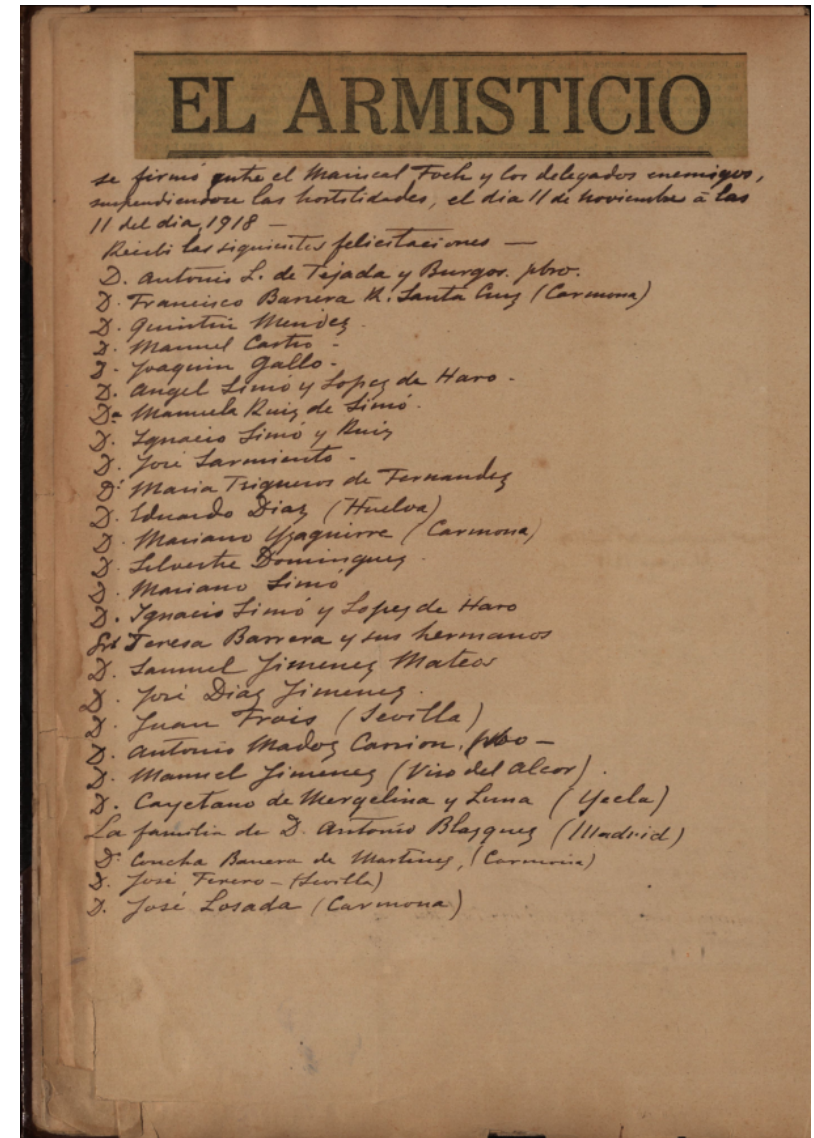 EL ARMISTICIO
se firmó entre el Mariscal Foch y los delegados enemigos,
suspendiendose las hostilidades, el dia 11 de noviembre á las
11 del dia, 1918 —
Recibi las siguientes felicitaciones —
D. Antonio L. de Tejada y Burgos. pbro.
D. Francisco Barrera R. Santa Cruz (Carmona)
D. Quintin Mendez.
D. Manuel Castro -
D. Joaquin Gallo -
D. Angel Simó y Lopez de Haro -
Dª Manuela Ruiz de Simó.
D. Ignacio Simó y Ruiz
D. José Sarmiento -
Dª Maria Trigueros de Fernandez
D. Eduardo Diaz (Huelva)
D. Mariano Yzaguirre (Carmona)
D. Silvestre Dominguez.
D. Mariano Simó
D. Ignacio Simó y Lopez de Haro
Srta Teresa Barrera y sus hermanos
D. Samuel Jimenez Mateos
D. José Diaz Jimenez.
D. Juan Frois (Sevilla)
D. Antonio Madoz Carrion, pbo —
D. Manuel Jimenez (Viso del Alcor).
D. Cayetano de Mergelina y Luna (Yecla)
La familia de D. Antonio Blazquez (Madrid)
Dª Concha Barrera de Martinez, (Carmona)
D. José Ferero - (Sevilla)
D. José Losada (Carmona)